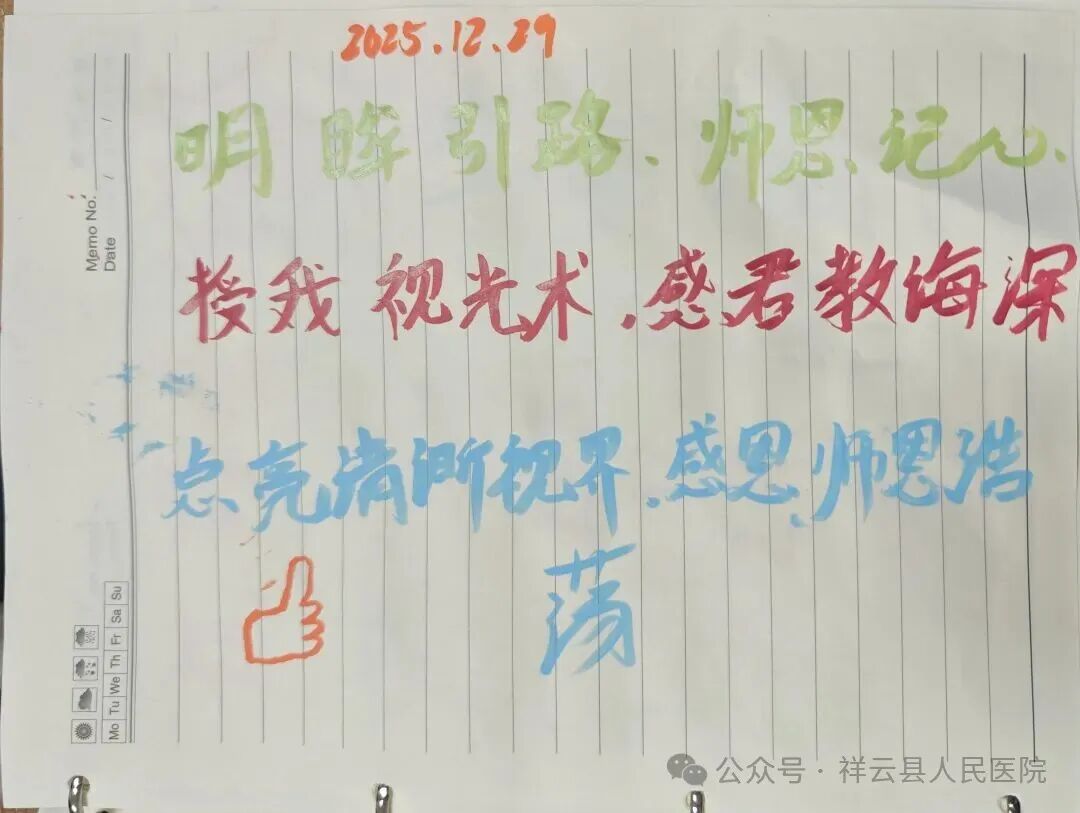 2025.12.29
明晖引路、师恩记心.
授我视光术,感君教海深
点亮清晰视界,感恩、师恩浩
荡
Memo No.
Date / /
Mo Tu We Th Fr Sa Su
公众号 · 祥云县人民医院